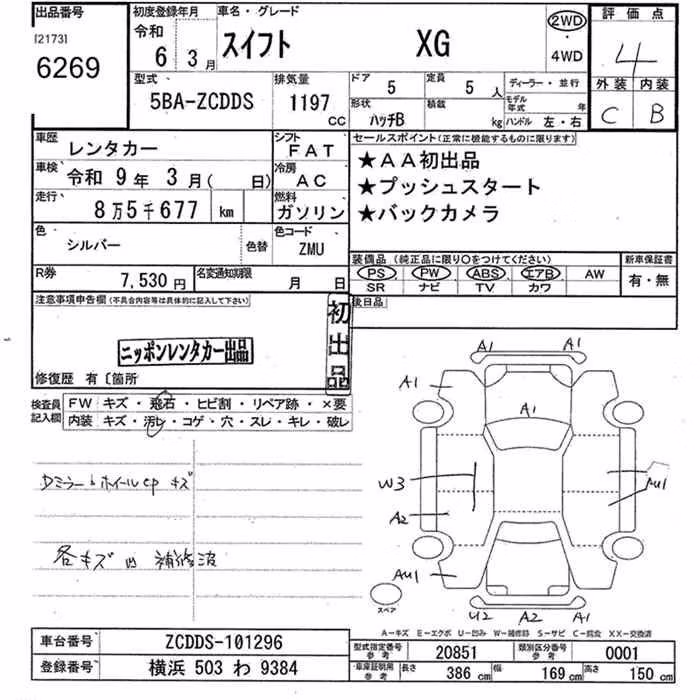 出品番号 初度登録年月 車名・グレード 2WD 評価点
[2173] 令和 ・ 4
6269 6 3月 スイフト XG 4WD
型式 排気量 ドア 定員 ディーラー・並行 外装 内装
5BA-ZCDDS 1197 CC 5 5人 モデル年式 年 C B
形状 積載
ハッチB kg ハンドル 左・右
車歴 レンタカー シフト FAT セールスポイント(正常に機能するものに限ります)
車検 令和 9年 3月( 日) 冷房 AC ★AA初出品
走行 8万5千677 km 燃料 ガソリン ★プッシュスタート
★バックカメラ
色 シルバー 色替 色コード ZMU
装備品(純正品に限り〇をつけてください) 新車保証書
R券 7,530円 名変通知期限 月 日 PS PW ABS エアB AW 有・無
SR ナビ TV カワ
注意事項申告欄(不具合内容等は具体的に記入して下さい) 後日品
初出品
ニッポンレンタカー出品
修復歴 有〔箇所
検査員記入欄 FW キズ・飛石・ヒビ割・リペア跡・×要
内装 キズ・汚レ・コゲ・穴・スレ・キレ・破レ
A1 A1
A1
A1
Dミラー ホイールcp キズ
W3 AU1
A2
各キズ凹 補修波
AU1
スペア
U2 A2 A1
A-キズ E-エクボ U-凹み W-補修跡 S-サビ C-腐食 XX-交換済
車台番号 ZCDDS-101296 型式指定番号 参考 20851 類別区分番号 参考 0001
登録番号 横浜 503 わ 9384 車庫証明用 参考 長さ 386 cm 幅 169 cm 高さ 150 cm